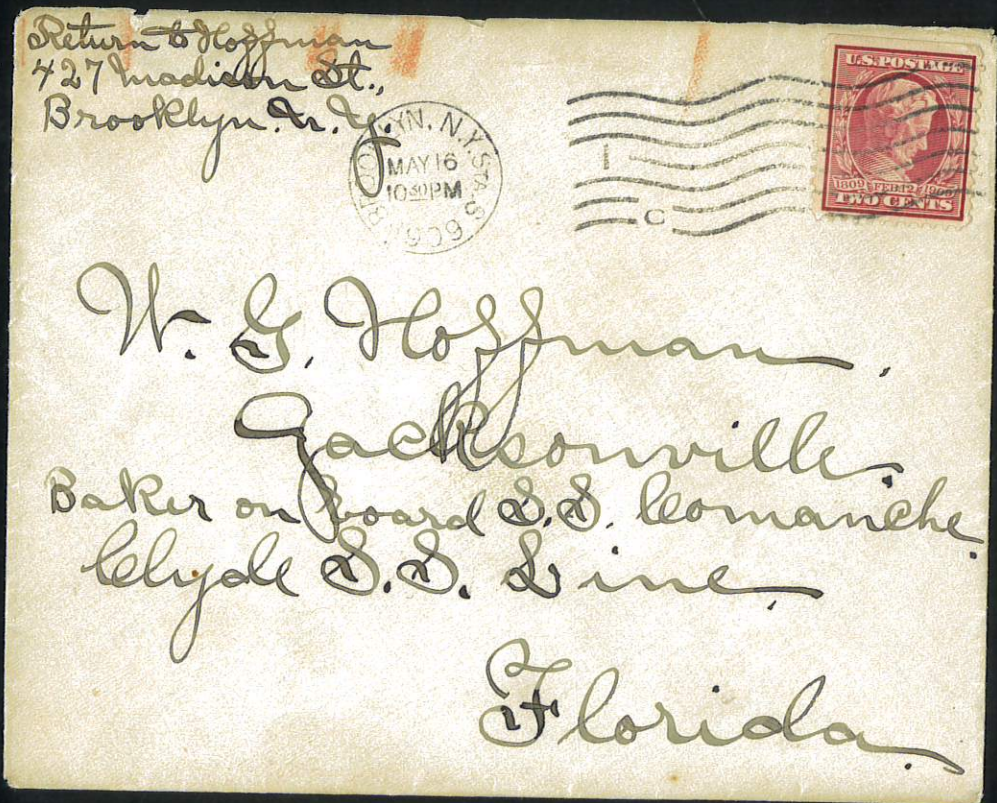 Return to Hoffman
427 Madison St.,
Brooklyn. N. Y.
BROOKLYN, N.Y. STA. S
MAY 16
10 30 PM
C
U.S. POSTAGE
1809 FEB. 12 1909
TWO CENTS
W. G. Hoffman.
Jacksonville.
Baker on board S.S. Comanche.
Clyde S.S. Line.
Florida.